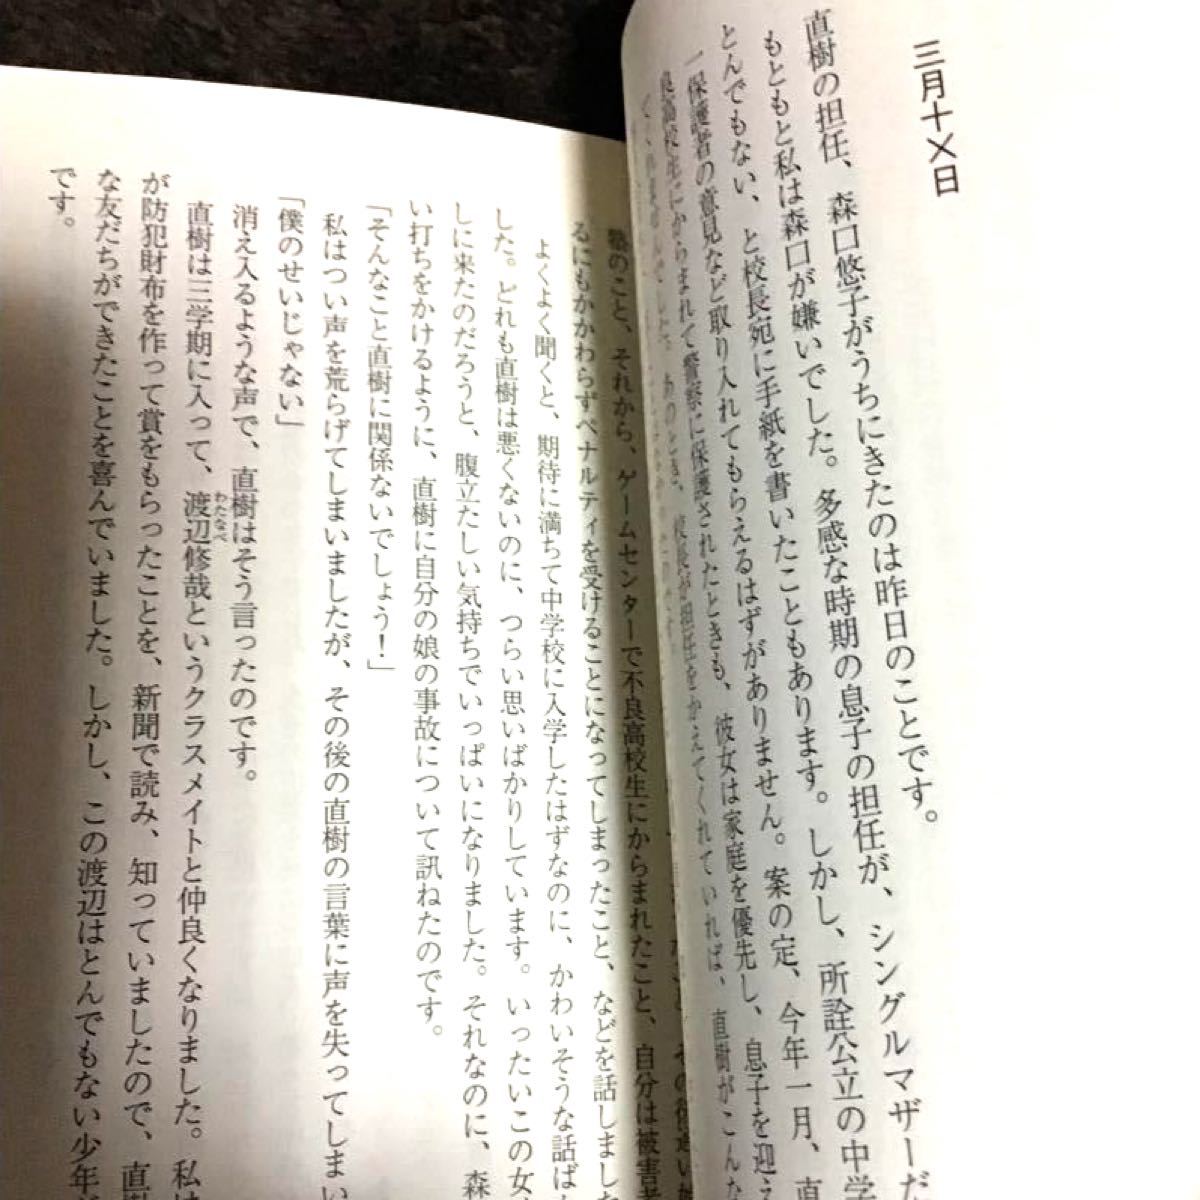 三月十×日
直樹の担任、森口悠子がうちにきたのは昨日のことです。
もともと私は森口が嫌いでした。多感な時期の息子の担任が、シングルマザーだ
とんでもない、と校長宛に手紙を書いたこともあります。しかし、所詮公立の中学
一保護者の意見など取り入れてもらえるはずがありません。案の定、今年一月、直
良高校生にからまれて警察に保護されたときも、彼女は家庭を優先し、息子を迎え
校長が担任をかえてくれていれば、直樹がこんな
塾のこと、それから、ゲームセンターで不良高校生にからまれたこと、自分は被害者
るにもかかわらずペナルティを受けることになってしまったこと、などを話しました
よくよく聞くと、期待に満ちて中学校に入学したはずなのに、かわいそうな話ば
した。どれも直樹は悪くないのに、つらい思いばかりしています。いったいこの女、
しに来たのだろうと、腹立たしい気持ちでいっぱいになりました。それなのに、森
い打ちをかけるように、直樹に自分の娘の事故について訊ねたのです。
「そんなこと直樹に関係ないでしょう！」
私はつい声を荒らげてしまいましたが、その後の直樹の言葉に声を失ってしまい
「僕のせいじゃない」
消え入るような声で、直樹はそう言ったのです。
直樹は三学期に入って、渡辺修哉というクラスメイトと仲良くなりました。私は
わたなべ
が防犯財布を作って賞をもらったことを、新聞で読み、知っていましたので、直樹
な友だちができたことを喜んでいました。しかし、この渡辺はとんでもない少年
です。